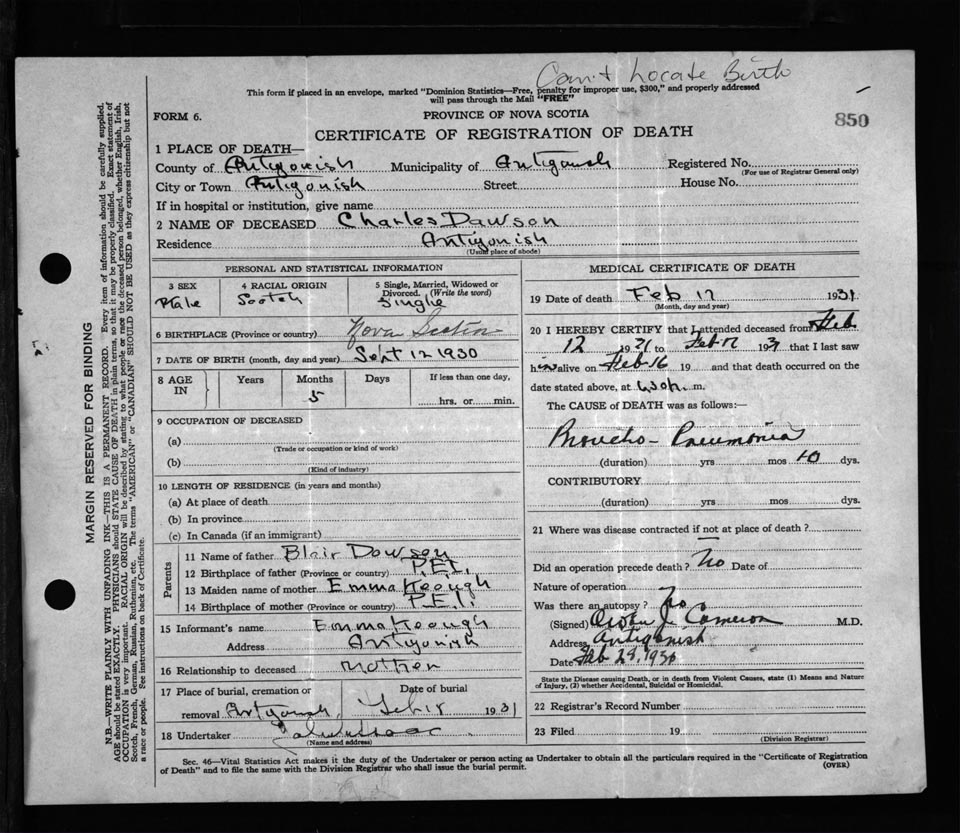 Can't Locate Birth
This form if placed in an envelope, marked "Dominion Statistics—Free, penalty for improper use, $300," and properly addressed
will pass through the Mail "FREE"
850
FORM 6.
PROVINCE OF NOVA SCOTIA
CERTIFICATE OF REGISTRATION OF DEATH
1 PLACE OF DEATH—
County of Antigonish Municipality of Antigonish Registered No.
(For use of Registrar General only)
City or Town Antigonish Street House No.
If in hospital or institution, give name
2 NAME OF DECEASED Charles Dawson
Residence Antigonish
(Usual place of abode)
PERSONAL AND STATISTICAL INFORMATION
3 SEX 4 RACIAL ORIGIN 5 Single, Married, Widowed or
Divorced. (Write the word)
Male Scotch Single
6 BIRTHPLACE (Province or country) Nova Scotia
7 DATE OF BIRTH (month, day and year) Sept 12 1930
8 AGE IN Years Months Days If less than one day,
5 hrs. or min.
9 OCCUPATION OF DECEASED
(a)
(Trade or occupation or kind of work)
(b)
(Kind of industry)
10 LENGTH OF RESIDENCE (in years and months)
(a) At place of death
(b) In province
(c) In Canada (if an immigrant)
Parents
11 Name of father Blair Dawson
12 Birthplace of father (Province or country) P.E.I.
13 Maiden name of mother Emma Keough
14 Birthplace of mother (Province or country) P.E.I.
15 Informant's name Emma Keough
Address Antigonish
16 Relationship to deceased Mother
17 Place of burial, cremation or Date of burial
removal Antigonish, Feb 18 1931
18 Undertaker
(Name and address)
MEDICAL CERTIFICATE OF DEATH
19 Date of death Feb 17 1931
(Month, day and year)
20 I HEREBY CERTIFY that I attended deceased from Feb.
12 1931 to Feb 17 193 that I last saw
him alive on Feb 16 19 and that death occurred on the
date stated above, at m.
The CAUSE OF DEATH was as follows:—
Broncho-Pneumonia
(duration) yrs mos 10 dys.
CONTRIBUTORY
(duration) yrs mos dys.
21 Where was disease contracted if not at place of death?
Did an operation precede death? No Date of
Nature of operation
Was there an autopsy? No
(Signed) J. Cameron M.D.
Address Antigonish
Date Feb 28, 1930
State the Disease causing Death, or in death from Violent Causes, state (1) Means and Nature
of Injury, (2) whether Accidental, Suicidal or Homicidal.
22 Registrar's Record Number
23 Filed 19
(Division Registrar)
Sec. 46—Vital Statistics Act makes it the duty of the Undertaker or person acting as Undertaker to obtain all the particulars required in the "Certificate of Registration
of Death" and to file the same with the Division Registrar who shall issue the burial permit.
(OVER)
MARGIN RESERVED FOR BINDING
N.B.—WRITE PLAINLY WITH UNFADING INK—THIS IS A PERMANENT RECORD. Every item of information should be carefully supplied.
AGE should be stated EXACTLY. PHYSICIANS should STATE CAUSE OF DEATH in plain terms, so that it may be properly classified. Exact statement of
OCCUPATION is very important. RACIAL ORIGIN will be described by stating to what people or race the deceased person belonged, whether English, Irish,
Scotch, French, German, Russian, Ruthenian, etc. The terms "AMERICAN" or "CANADIAN" SHOULD NOT BE USED as they express citizenship but not
a race or people. See instructions on back of Certificate.